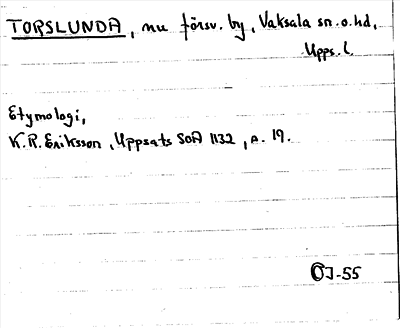 TORSLUNDA, nu försv. by, Vaksala sn. o. hd,
Upps. l.
Etymologi,
K.R. Eriksson, Uppsats SOA 1132, s. 19.
OJ-55